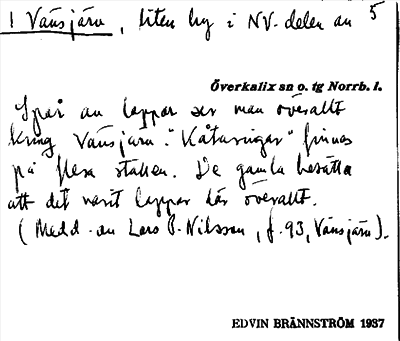 1 Vänsjärv, liten by i NV. delen av 5
Överkalix sn o. tg Norrb. l.
Spår av lappar ser man överallt
kring Vänsjärv. "Kåtaringar" finnes
på flera ställen. De gamla berätta
att det varit lappar här överallt.
(Medd. av Lars P. Nilsson, f. 93, Vänsjärv).
EDVIN BRÄNNSTRÖM 1937